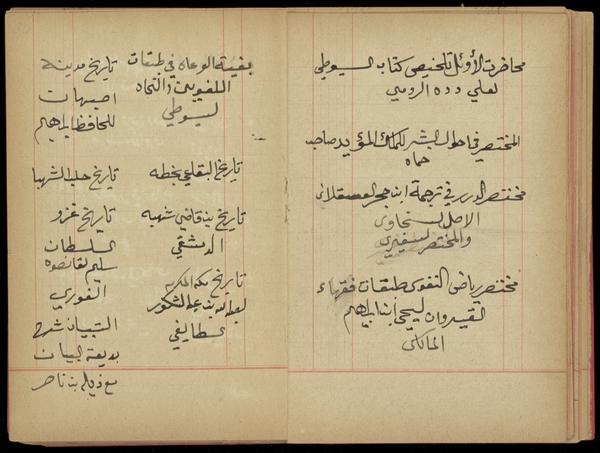 محاضرت الأوئل تلخيص كتاب السيوطي
لعلي دده الرومي
المختصر في احوال البشر للملك المؤيد صاحب
حماه
مختصر الدرر في ترجمة ابن حجر العسقلاني
الاصل لسخاوي
والمختصر لسفيري
مختصر رياض النفوس طبقات فقهاء
القيروان ليحي ابن ابراهيم
المالكي
بغية الوعاه في طبقات
اللغويين والنحاه
لسيوطي
تاريخ البقاعي بخطه
تاريخ بن قاضي شهبه
الدمشقي
تاريخ مكه المكرمه
لعبد الله بن عبد الشكور
لطايفي
تاريخ مدينة
اصبهان
للحافظ ابراهيم
تاريخ حلب الشهبا
تاريخ غزو
السلطان
سليم لقانصوه
الغوري
التبيان شرح
بديعة البيان
مع ذيله بن ناصر